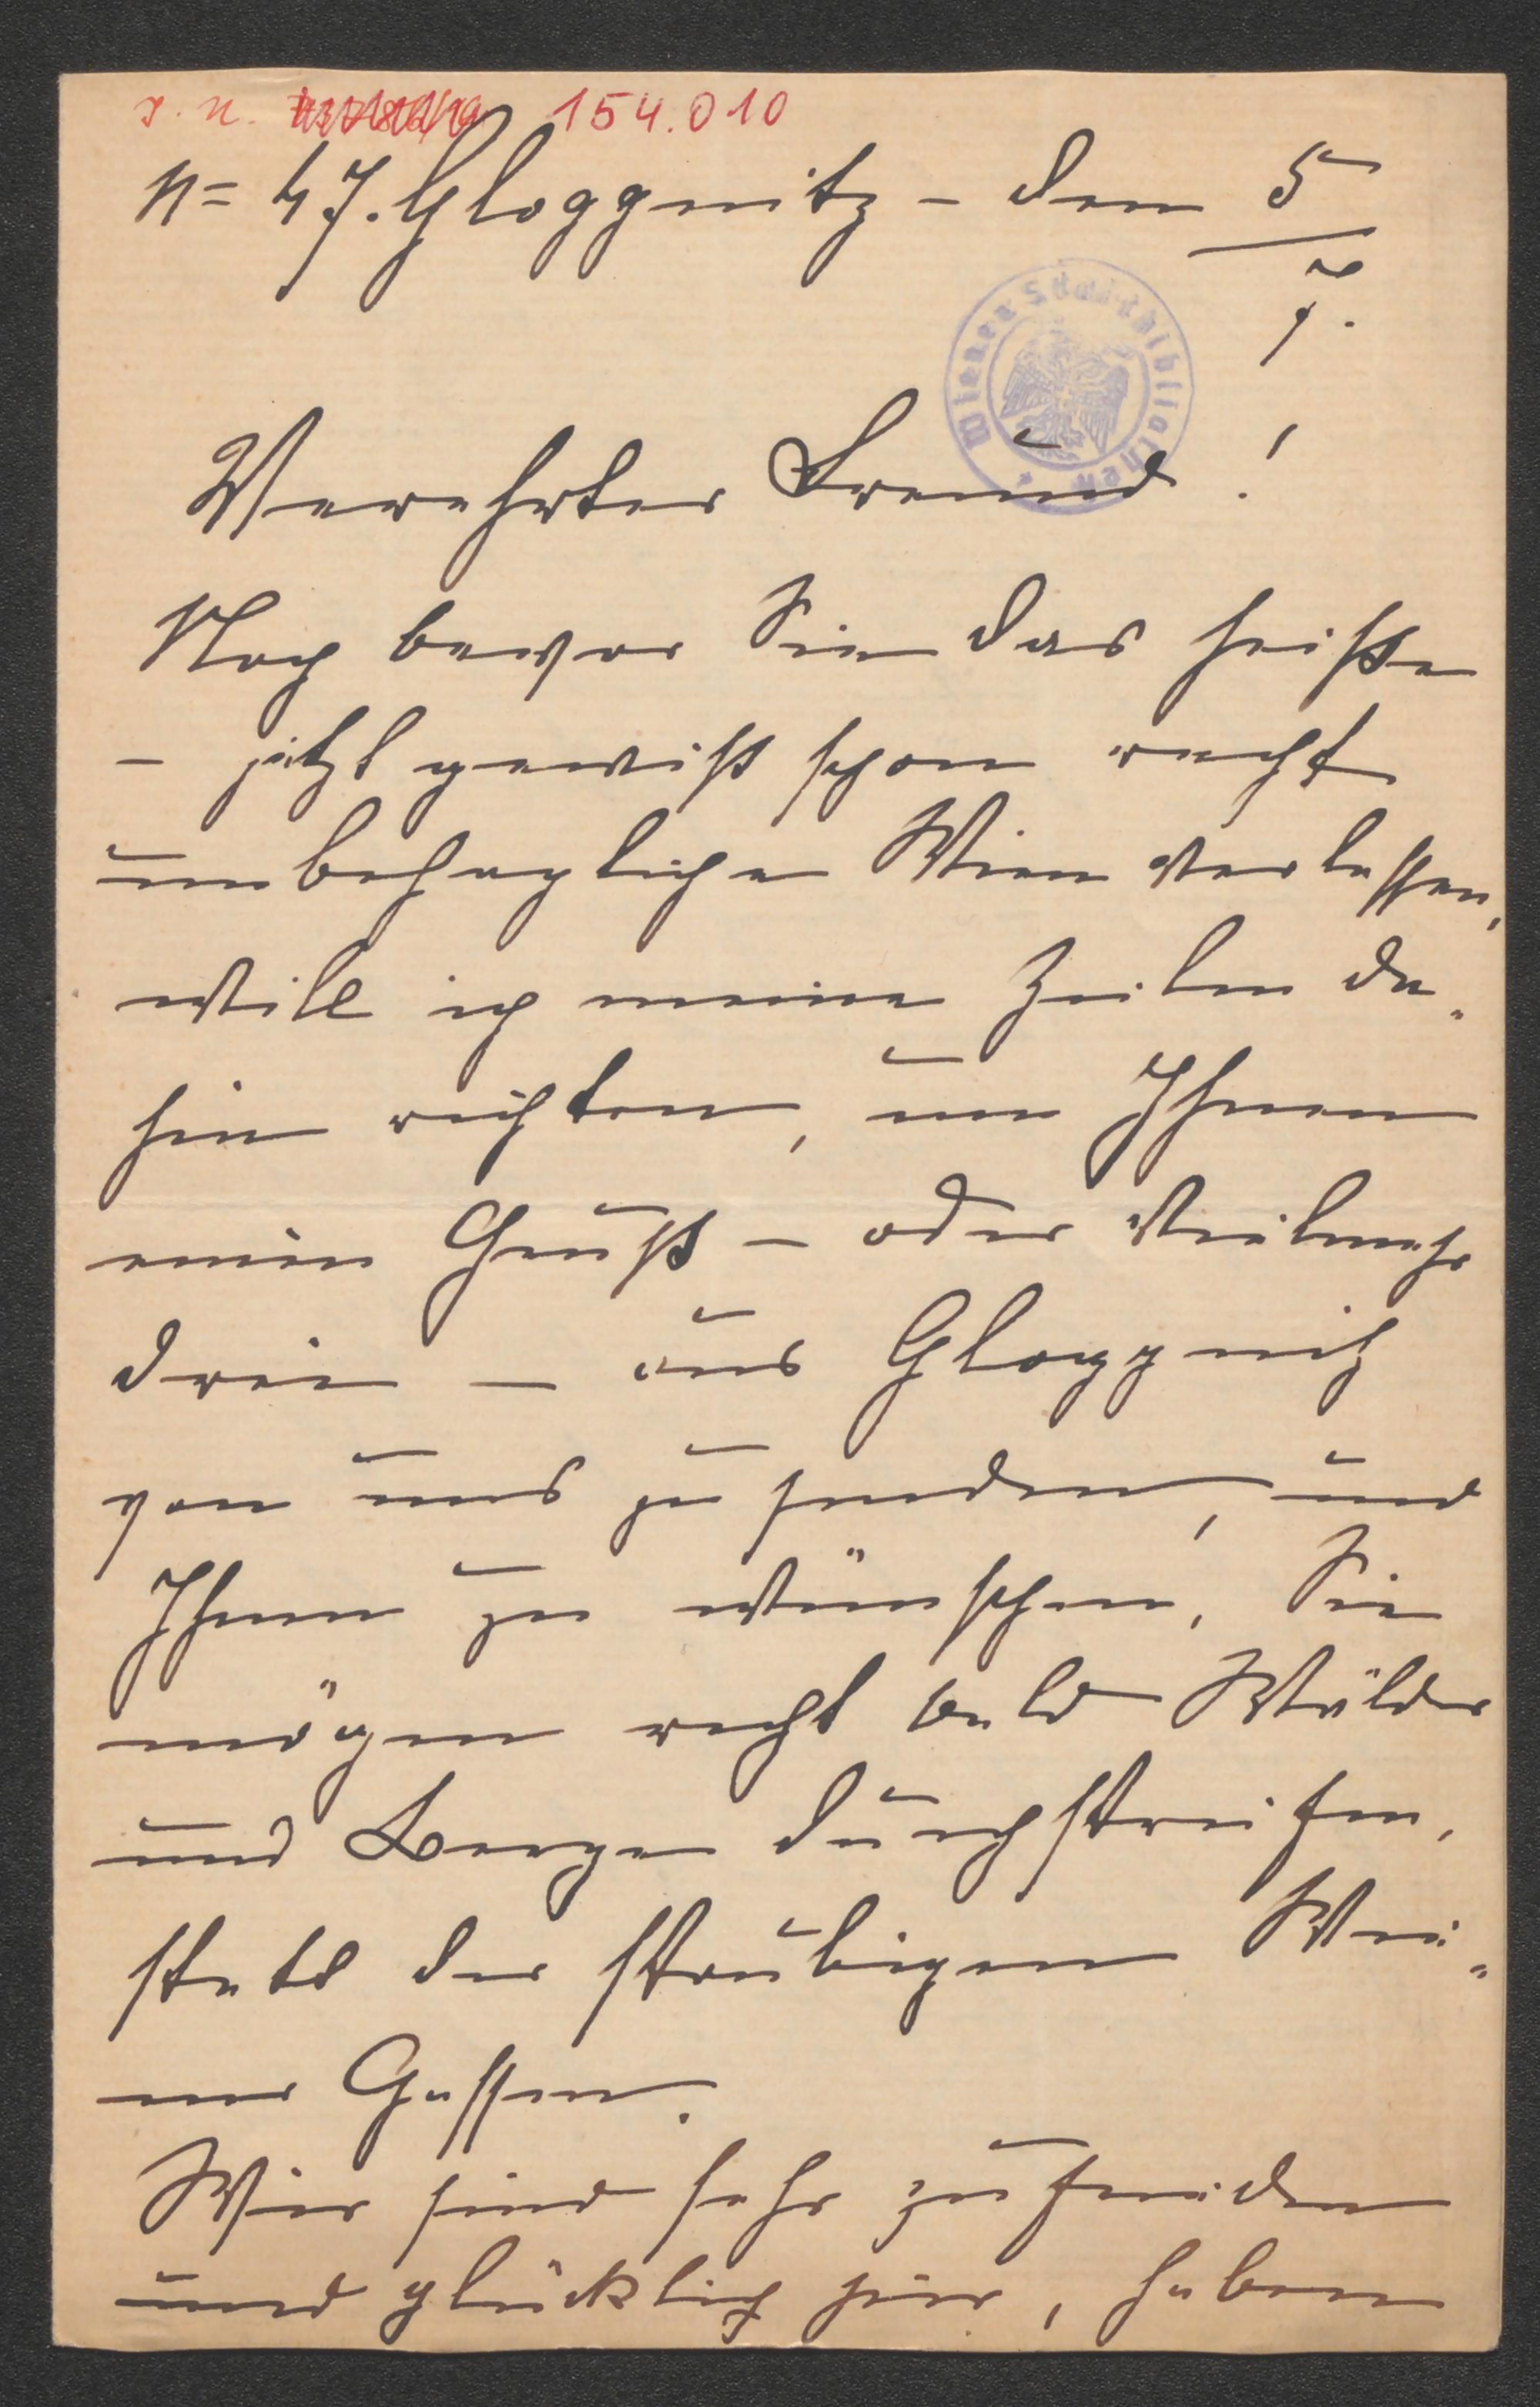 I. N. 154.010
N= 47. Gloggnitz – den 5/7.
Wiener Stadtbibliothek
Verehrter Freund!
Noch bevor Sie das heiße
– jetzt gewiß schon recht
unbehagliche Wien verlassen,
will ich meine Zeilen da-
hin richten, um Ihnen
einen Gruß – oder vielmehr
drei – aus Gloggnitz
von uns zu senden, und
Ihnen zu wünschen, Sie
mögen recht bald Wälder
und Berge durchstreifen,
statt der staubigen Wie-
ner Gassen.
Wir sind sehr zufrieden
und glücklich hier, haben